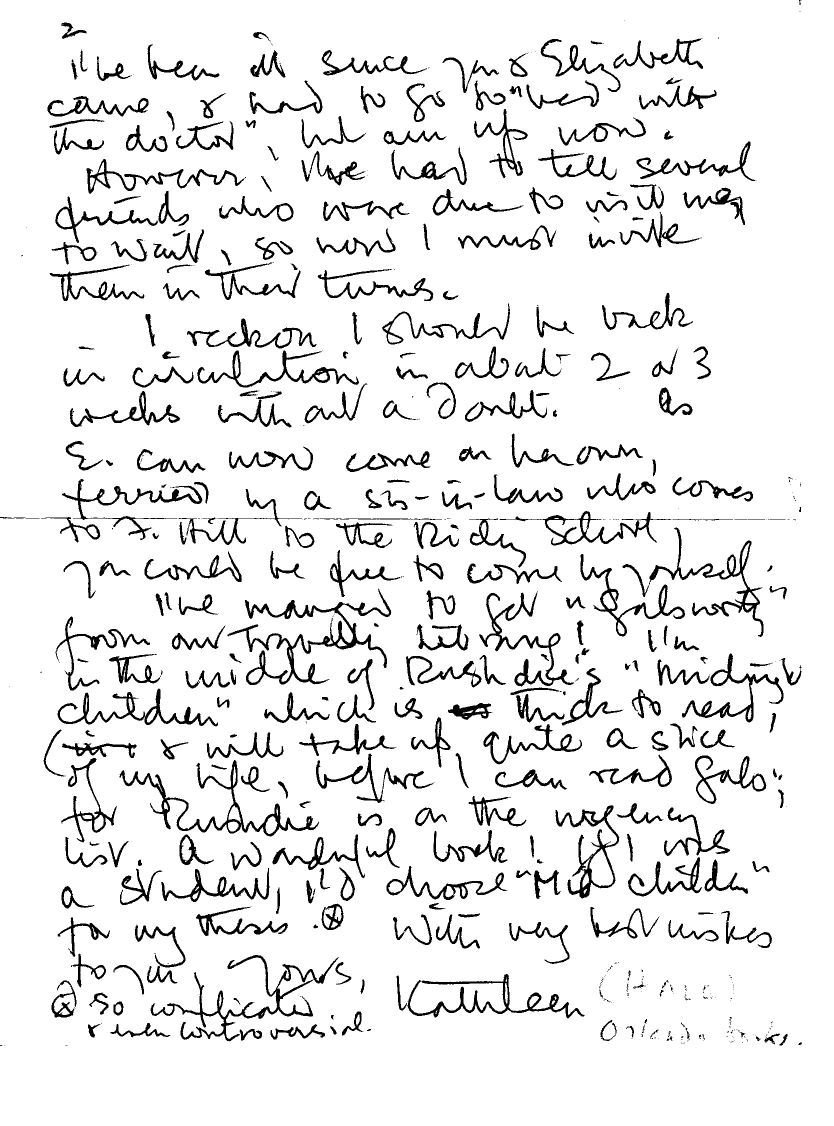 2
I've been ill since you & Elizabeth
came, & had to go to "bed with
the doctor", but am up now.
However, I've had to tell several
friends who were due to visit me,
to wait, so now I must invite
them in their turns.
I reckon I should be back
in circulation in about 2 or 3
weeks without a doubt. As
E. can now come on her own,
ferried by a sis-in-law who comes
to F. Hill to the Riding School,
you could be free to come by yourself.
I've managed to get "Galsworthy"
from our Travelling Library! I'm
in the middle of Rushdie's "Midnight
Children" which is thick to read,
(& will take up quite a slice
of my life, before I can read Gals;
for Rushdie is on the urgency
list. A wonderful book! If I was
a student, I'd choose "Mid Children"
for my thesis. ⊗ With very best wishes
to you, Yours,
⊗ so complicated Kathleen (HALE)
& even controversial. Orlando books.